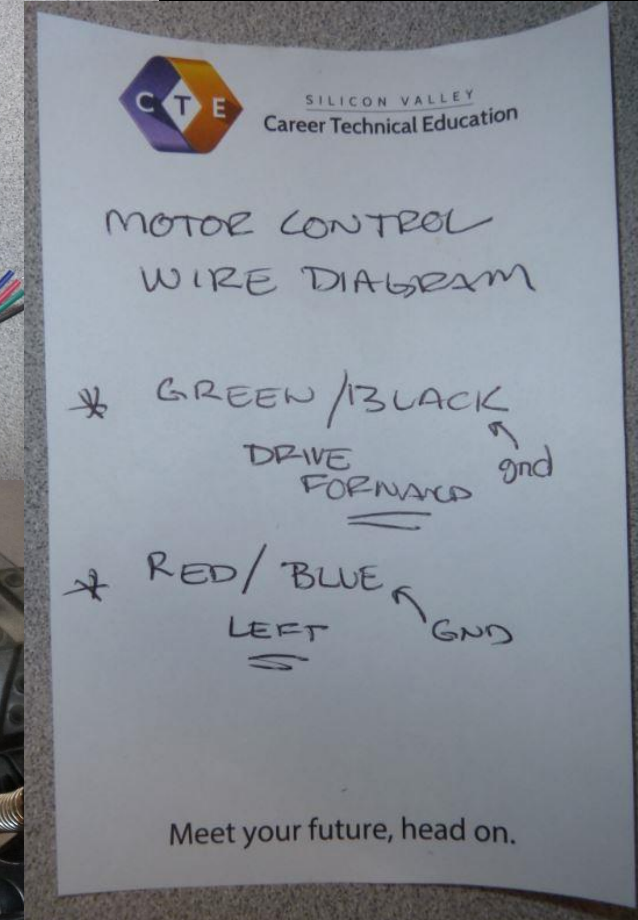 CTE
SILICON VALLEY
Career Technical Education
MOTOR CONTROL
WIRE DIAGRAM
* GREEN/BLACK
gnd
DRIVE
FORWARD
* RED/BLUE
GND
LEFT
Meet your future, head on.